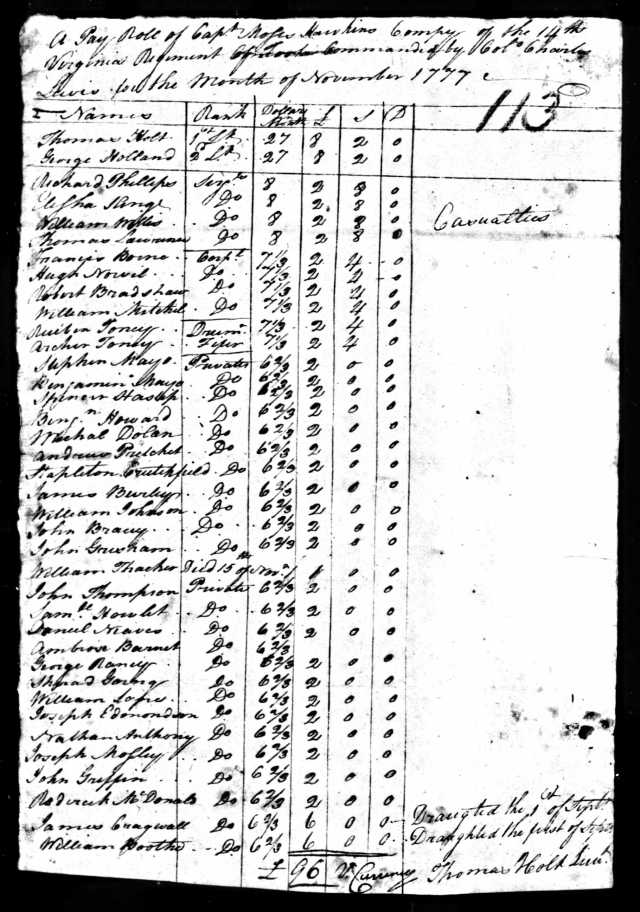 A Pay Roll of Capt Moses Hawkins Compy of the 14th
Virginia Regiment Commanded by Colo Charles
Lewis for the Month of November 1777
113
Names Rank Dollars Month £ S D
Thomas Holt 1st Lt 27 8 2 0
George Holland 2 Lt 27 8 2 0
Richard Phillips Serjt 8 2 8 0
Elisha Do 8 2 8 0
William Willis Do 8 2 8 0
Casualties
Thomas Lawrence Do 8 2 8 0
Francis Corpl 7 1/3 2 4 0
Hugh Do 7 1/3 2 4 0
Robert Bradshaw Do 7 1/3 2 4 0
William Mitchel Do 7 1/3 2 4 0
Reuben Toney Drumr 7 1/3 2 4 0
Archer Toney Fifer 7 1/3 2 4 0
Stephen Mayo Private 6 2/3 2 0 0
Benjamin Mayo Do 6 2/3 2 0 0
Spencer Do 6 2/3 2 0 0
Benjn Howard Do 6 2/3 2 0 0
Michal Dolan Do 6 2/3 2 0 0
Andrew Pritchet Do 6 2/3 2 0 0
Stapleton Crutchfield Do 6 2/3 2 0 0
James Burley Do 6 2/3 2 0 0
William Johnson Do 6 2/3 2 0 0
John Do 6 2/3 2 0 0
John Gresham Do 6 2/3 2 0 0
William Thacker Died 15 of Novr 1 0 0
John Thompson Private 6 2/3 2 0 0
Saml Howlet Do 6 2/3 2 0 0
Daniel Neaves Do 6 2/3 2 0 0
Ambrose Barnet Do 6 2/3
George Raney Do 6 2/3 2 0 0
Going Do 6 2/3 2 0 0
William Do 6 2/3 2 0 0
Joseph Edmondson Do 6 2/3 2 0 0
Nathan Anthony Do 6 2/3 2 0 0
Joseph Mosley Do 6 2/3 2 0 0
John Griffin Do 6 2/3 2 0 0
Roderick McDonald Do 6 2/3 2 0 0
James Cragwall Do 6 2/3 6 0 0 Draughted the 1st of Septr
William Boothe Do 6 2/3 6 0 0 Draughted the first of Septr
£ 96 Va Currency Thomas Holt Lieut